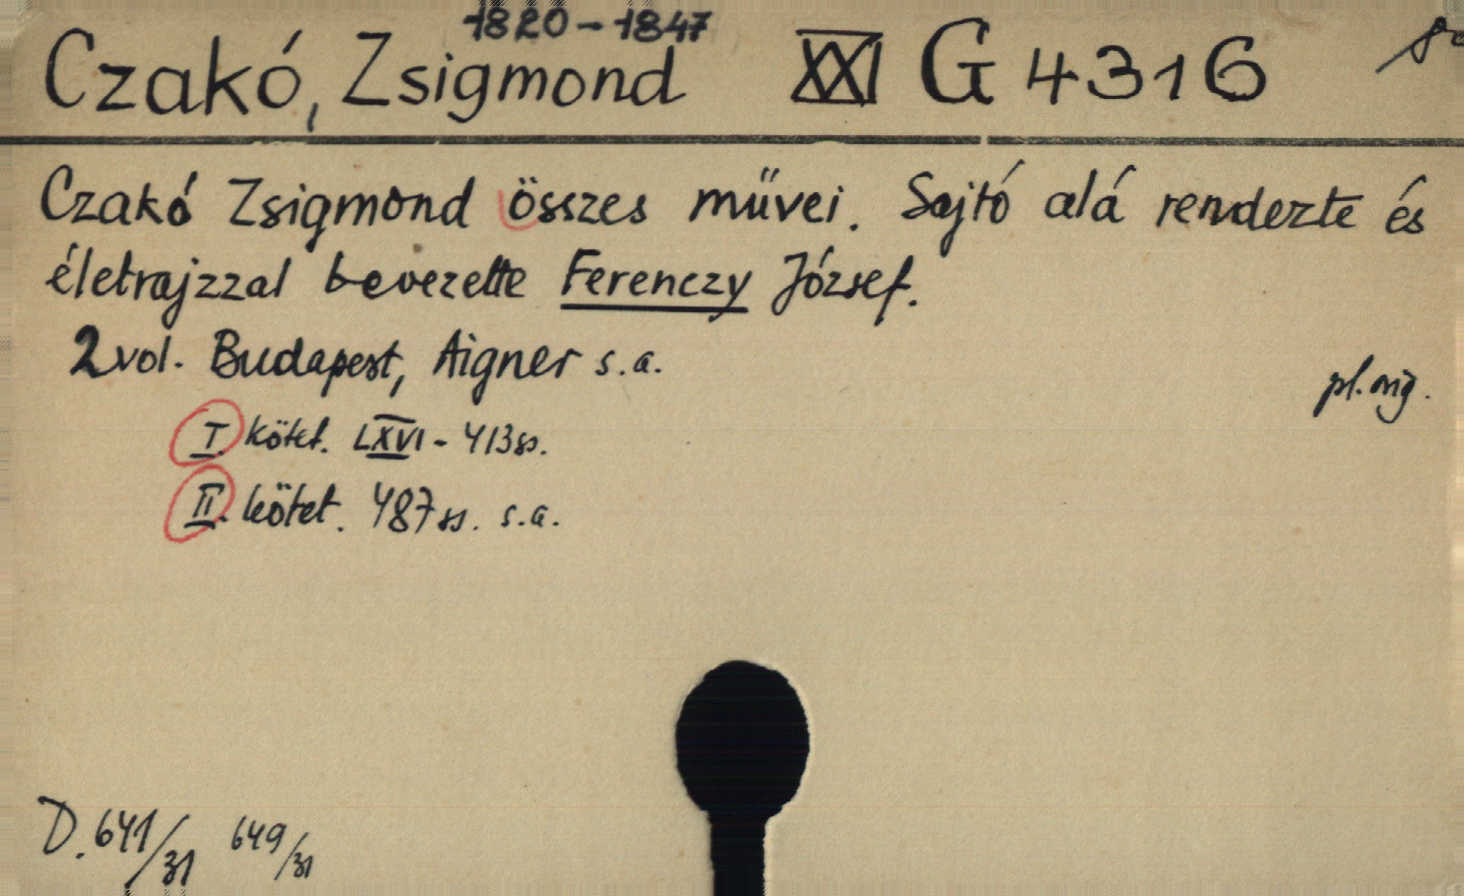 1820-1847
Czakó, Zsigmond XXI G 4316
Czakó Zsigmond összes művei. Sajtó alá rendezte és
életrajzzal bevezette Ferenczy József.
2 vol. Budapest, Aigner s.a.
pl. orig.
I. kötet. LXVI - 413 ss.
II. kötet. 487 ss. s.a.
D. 641/31 649/31